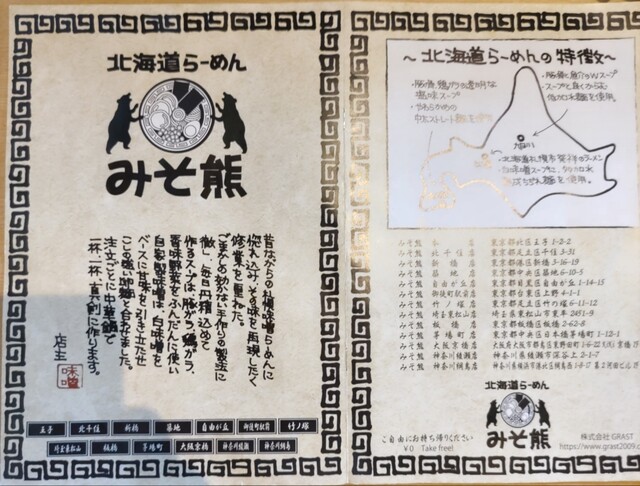 北海道らーめん
みそ熊
昔ながらの札幌味噌らーめんに
惚れ込み、その味を再現したく
修業を重ねた。
ごまかしの効かない手作りの製法に
徹し、毎日丹精込めて
作るスープは豚がら、鶏がら、
香味野菜をふんだんに使い
自家製味噌は、白味噌を
ベースに甘味を引き立たせ
こしの強い麺と合わせました。
注文ごとに中華鍋で
一杯一杯、真剣に作ります。
店主
味噌
王子 北千住 新橋 築地 自由が丘 御徒町駅前 竹ノ塚
埼玉東松山 板橋 茅場町 大阪京橋 神奈川綾瀬 神奈川綱島
～北海道らーめんの特徴～
・豚骨、鶏がらの透明な
塩味スープ
・やわらかめの
中太ストレート麺を使用
・豚骨と魚介のWスープ
・スープと良くからむ
低加水麺を使用。
旭川
・北海道札幌市発祥のラーメン
みそ熊 本店 東京都北区王子1-2-2
みそ熊 北千住店 東京都足立区千住3-31
みそ熊 新橋店 東京都港区新橋3-16-19
みそ熊 築地店 東京都中央区築地6-10-5
みそ熊 自由が丘店 東京都目黒区自由が丘1-14-15
みそ熊 御徒町駅前店 東京都台東区上野4-1-1
みそ熊 竹ノ塚店 東京都足立区竹の塚6-11-12
みそ熊 埼玉東松山店 埼玉県東松山市
みそ熊 板橋店 東京都板橋区板橋2-62-8
みそ熊 茅場町店 東京都中央区日本橋茅場町1-12-1
みそ熊 大阪京橋店 大阪府大阪市都島区東野田町
みそ熊 神奈川綾瀬店 神奈川県綾瀬市深谷上2-1-7
みそ熊 神奈川綱島店 神奈川県横浜市港北区綱島西
ご自由にお持ち帰りください
¥0 Take free!
北海道らーめん
みそ熊
株式会社GRAST
https://www.grast2009.c